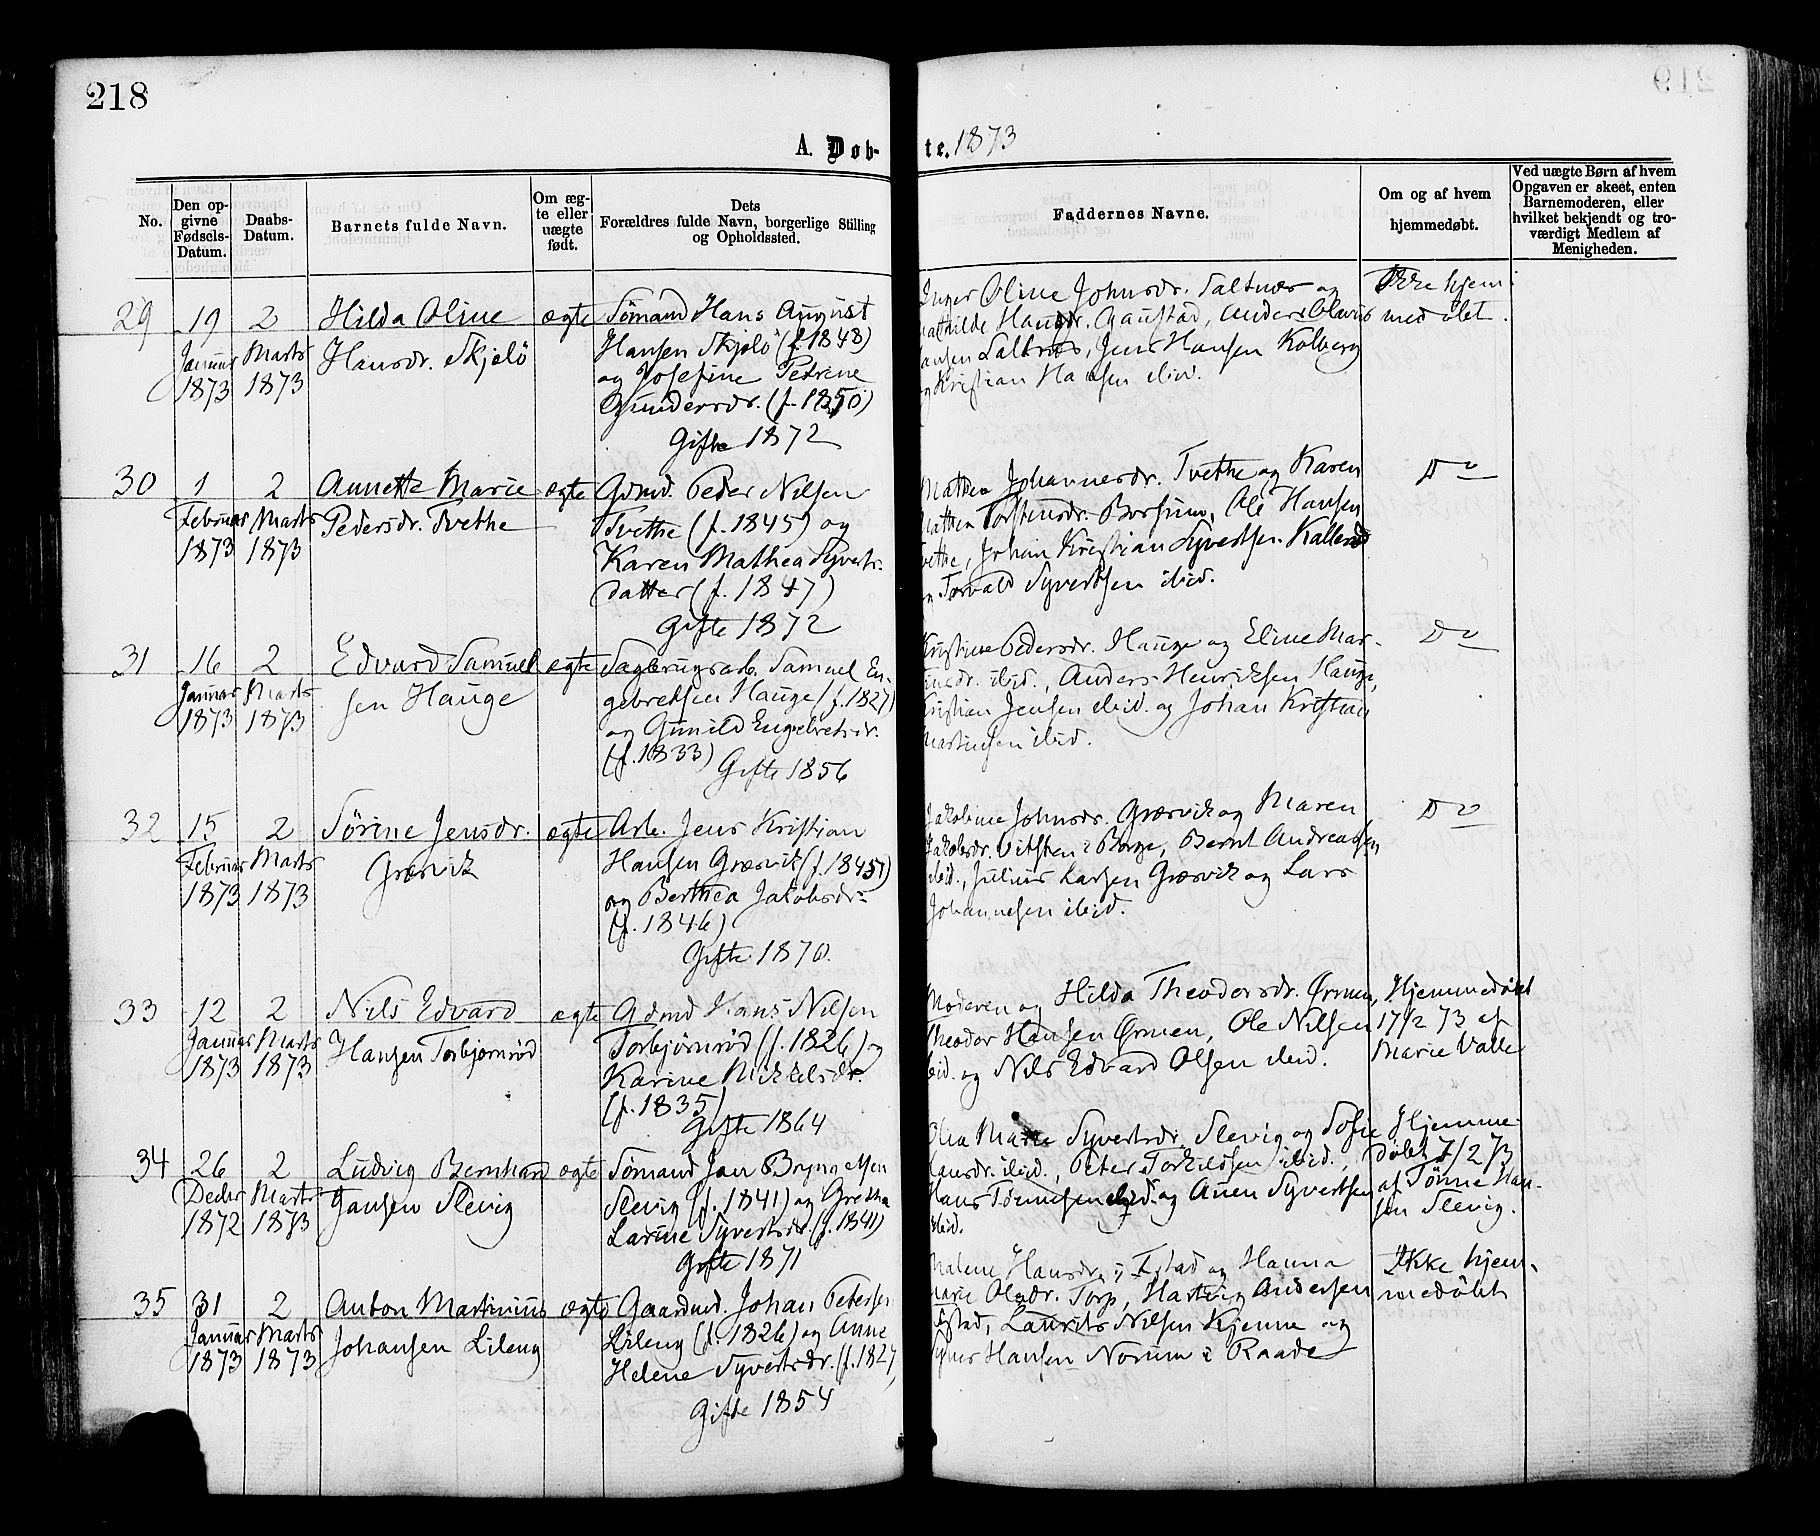 218
A. Døb-
te. 1873
No.
Den op-
givne
Fødsels-
Datum.
Daabs-
Datum.
Barnets fulde Navn.
Om æg-
te eller
uægte
født.
Dets
Forældres fulde Navn, borgerlige Stilling
og Opholdssted.
Faddernes Navne.
Om og af hvem
hjemmedøbt.
Ved uægte Børn af hvem
Opgaven er skeet, enten
Barnemoderen, eller
hvilket bekjendt og tro-
værdigt Medlem af
Menigheden.
29
19
Januar
1873
2
Marts
1873
Hilda Oline
Hansdr. Skjelö
ægte
Sömand Hans August
Hansen Skjelö (f. 1848)
og Josefine Petrine
Gundersdr. (f. 1850)
Gifte 1872
Inger Oline Johnsdr. Saltnæs og
Mathilde Hansdr. Gaustad, Anders Olavus
Hansen Saltnæs, Jens Hansen Kolberg
og Kristian Hansen ibid.
Ikke hjem-
medøbt.
30
1
Februar
1873
2
Marts
1873
Annette Marie
Pedersdr. Tvethe
ægte
Gdmd. Peder Nilsen
Tvethe (f. 1845) og
Karen Mathea Syverts-
datter (f. 1847)
Gifte 1872
Mathea Johannesdr. Tvethe og Karen
Mathea Torstensdr. Borsum, Ole Hansen
Tvethe, Johan Kristian Syvertsen Kallerød
Torvald Syvertsen ibid.
Do
31
16
Januar
1873
2
Marts
1873
Edvard Samuel
sen Hauge
ægte
Sagbrugsarb. Samuel En-
gebretsen Hauge (f. 1827)
og Gunild Engebretsdr.
(f. 1833)
Gifte 1856
Kristine Pedersdr. Hauge og Eline Mar-
tinsdr. ibid., Anders Henriksen Hauge,
Kristian Jensen ibid. og Johan Kristian
Martinsen ibid.
Do
32
15
Februar
1873
2
Marts
1873
Sörine Jensdr.
Græsvik
ægte
Arb. Jens Kristian
Hansen Græsvik (f. 1845)
og Berthea Jakobsdr.
(f. 1846)
Gifte 1870.
Jakobine Johnsdr. Græsvik og Maren
Jakobsdr. Vitsten i Borge, Bernt Andreassen
ibid., Julius Larsen Græsvik og Lars
Johannesen ibid.
Do
33
12
Januar
1873
2
Marts
1873
Nils Edvard
Hansen Torbjørnrød
ægte
Gdmd Hans Nilsen
Torbjørnrød (f. 1826) og
Karine Mikkelsdr.
(f. 1835)
Gifte 1864
Moderen og Hilda Theodorsdr. Ørmen,
Theodor Hansen Ørmen, Ole Nilsen
ibid. og Nils Edvard Olsen ibid.
Hjemmedøbt
17/2 73 af
Marie Valle
34
26
Decbr
1872
2
Marts
1873
Ludvig Bernhard
Jansen Slevig
ægte
Sömand Jan Bryngelsen
Slevig (f. 1841) og Grethe
Larine Syvertsdr. (f. 1841)
Gifte 1871
Marie Syvertsdr. Slevig og Sofie
Hansdr. ibid., Peter Torkildsen ibid.,
Hans Tönnesen ibid. og Anen Syvertsen
ibid.
Hjemme-
døbt 7/2 73
af Tönne Han-
sen Slevig.
35
31
Januar
1873
2
Marts
1873
Anton Martinius
Johansen Lileng
ægte
Gaardmd. Johan Petersen
Lileng (f. 1826) og Anne
Helene Syvertsdr. (f. 1827
Gifte 1854
Malene Hansdr. Istad og Hanna
Marie Olsdr. Torp, Hartvig Andersen
Istad, Laurits Nilsen Kjenne og
Hansen Norum i Raade
Ikke hjem-
medøbt